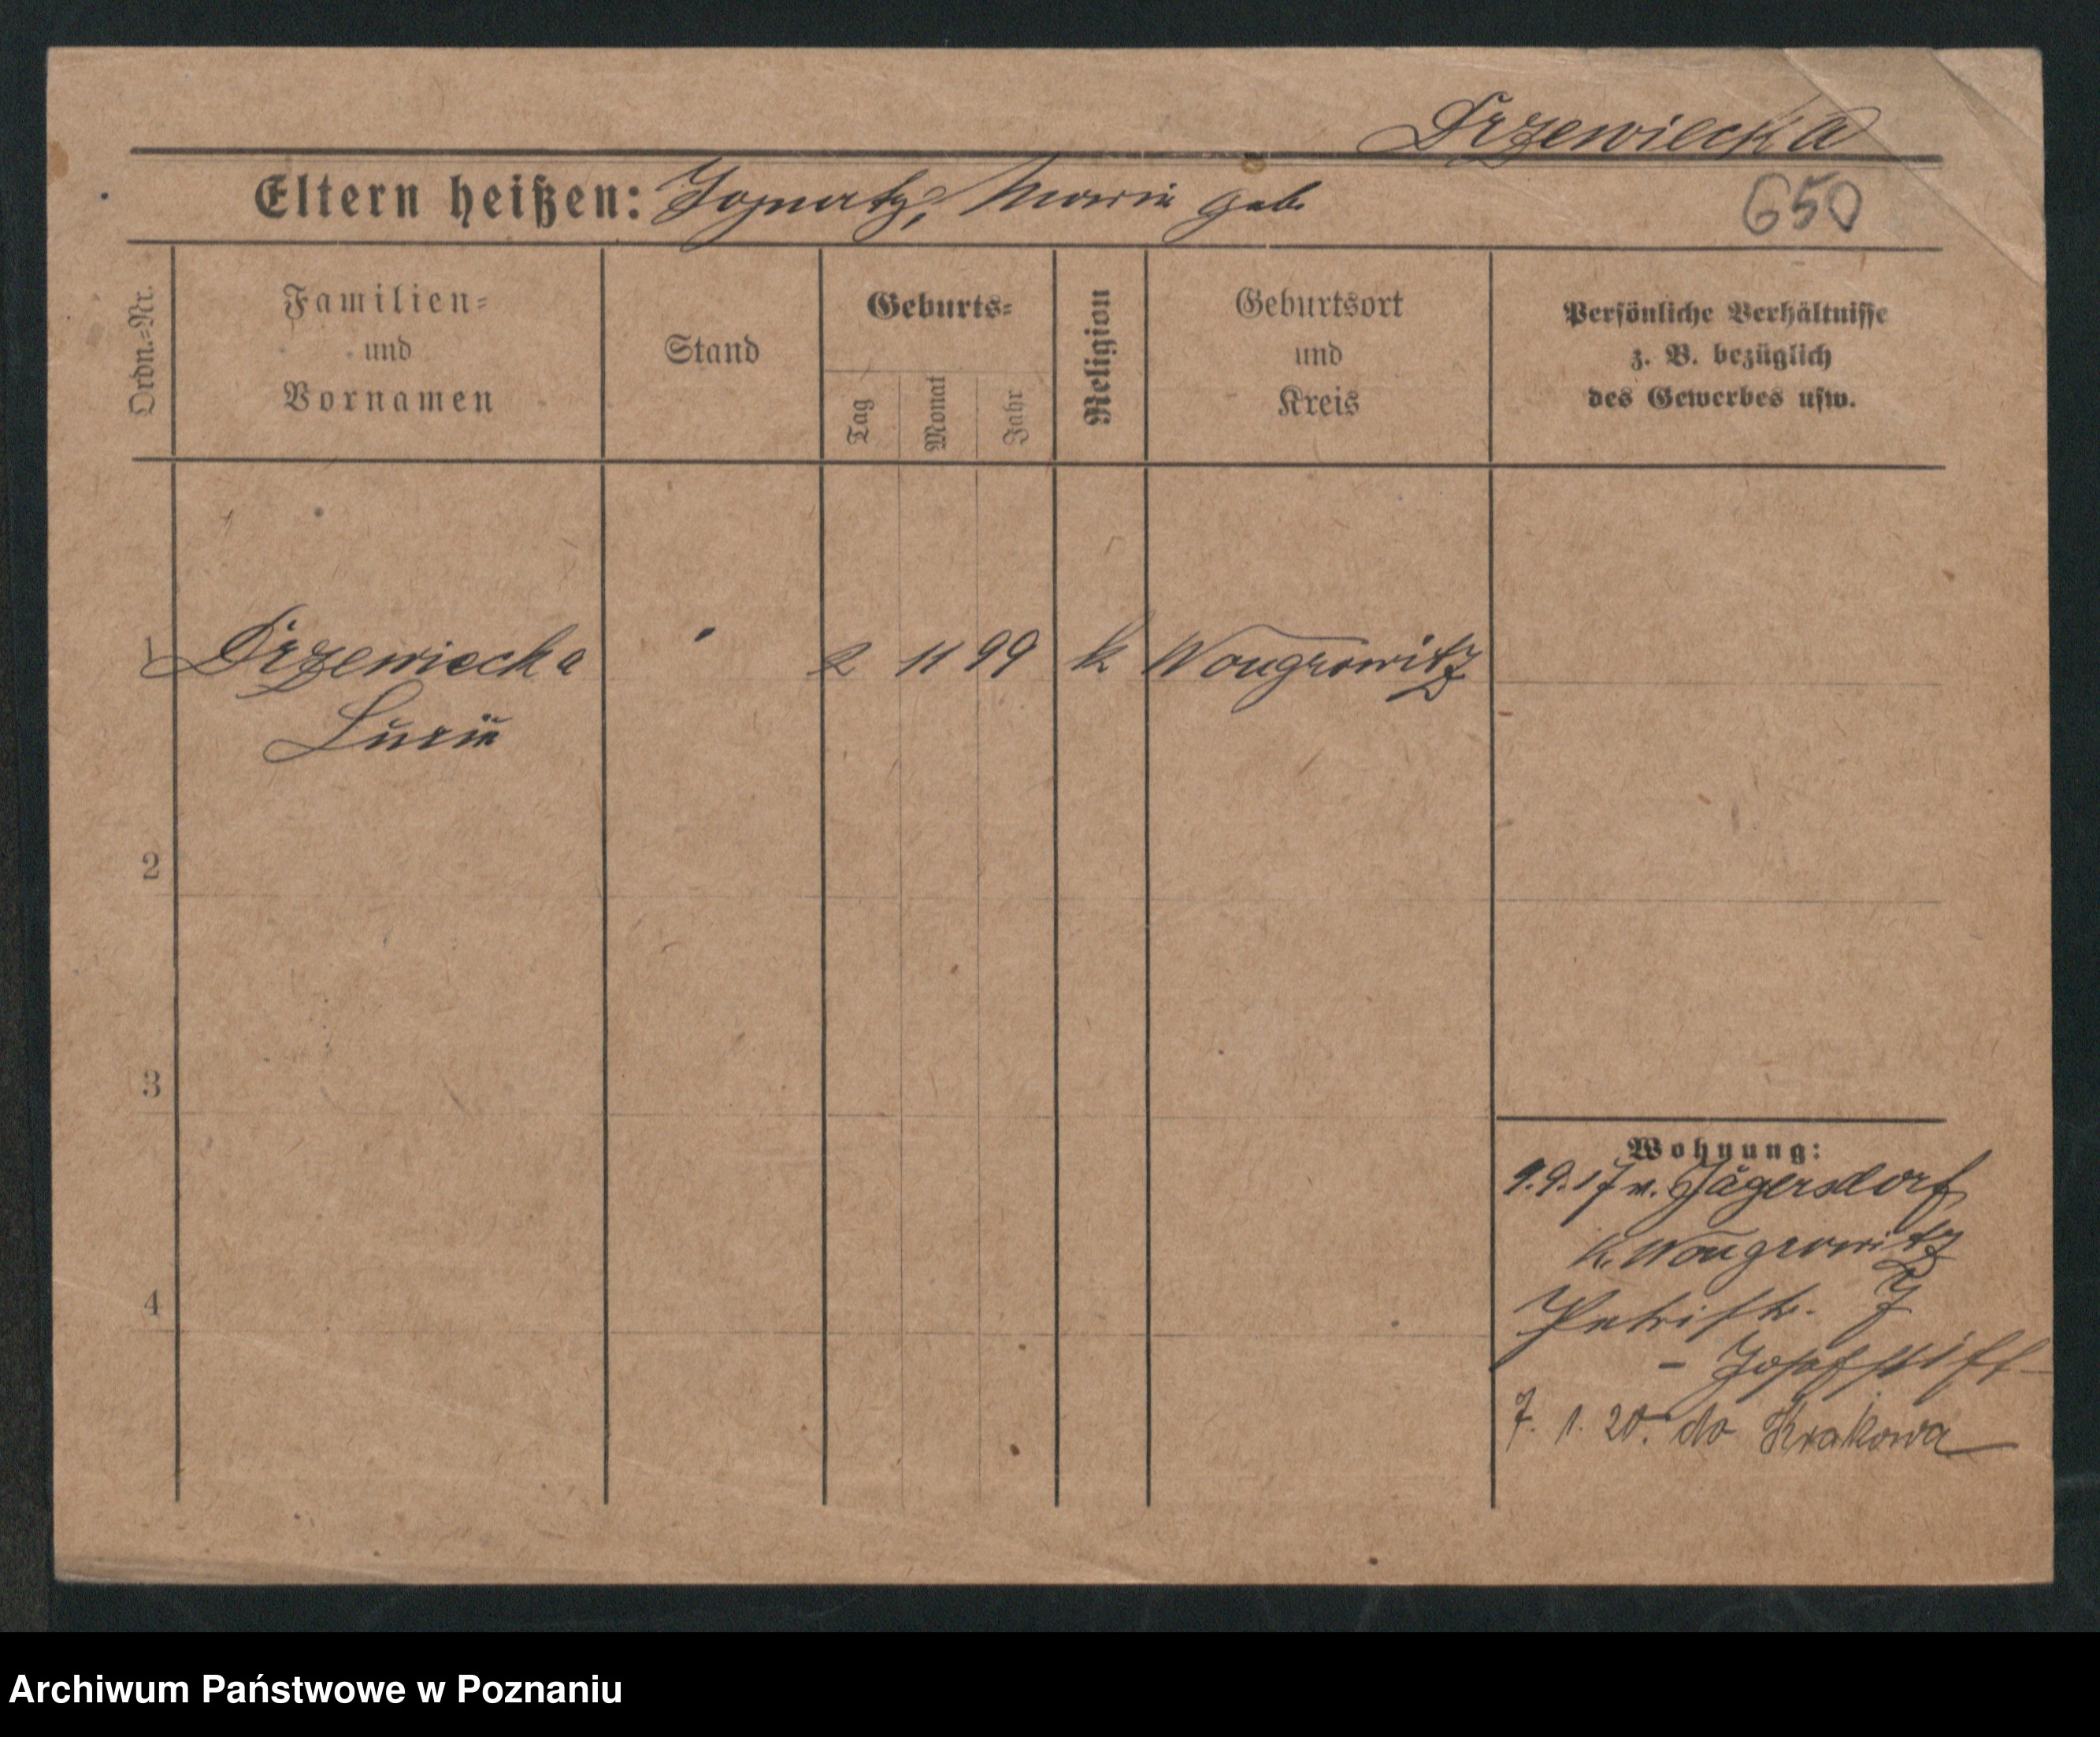 Drzewiecka
Eltern heißen: Ignatz, Maria geb.
650
Ordn.=Nr.
Familien=
und
Vornamen
Stand
Geburts=
Tag
Monat
Jahr
Religion
Geburtsort
und
Kreis
Persönliche Verhältnisse
z. B. bezüglich
des Gewerbes usw.
1 Drzewiecka " 2 11 99 k Wongrowitz
2
3
4
Wohnung:
9.9.17 v. Jägersdorf
K. Wongrowitz
Petristr. 7
- Josefstift -
7. 1. 20. do Krakowa
Archiwum Państwowe w Poznaniu